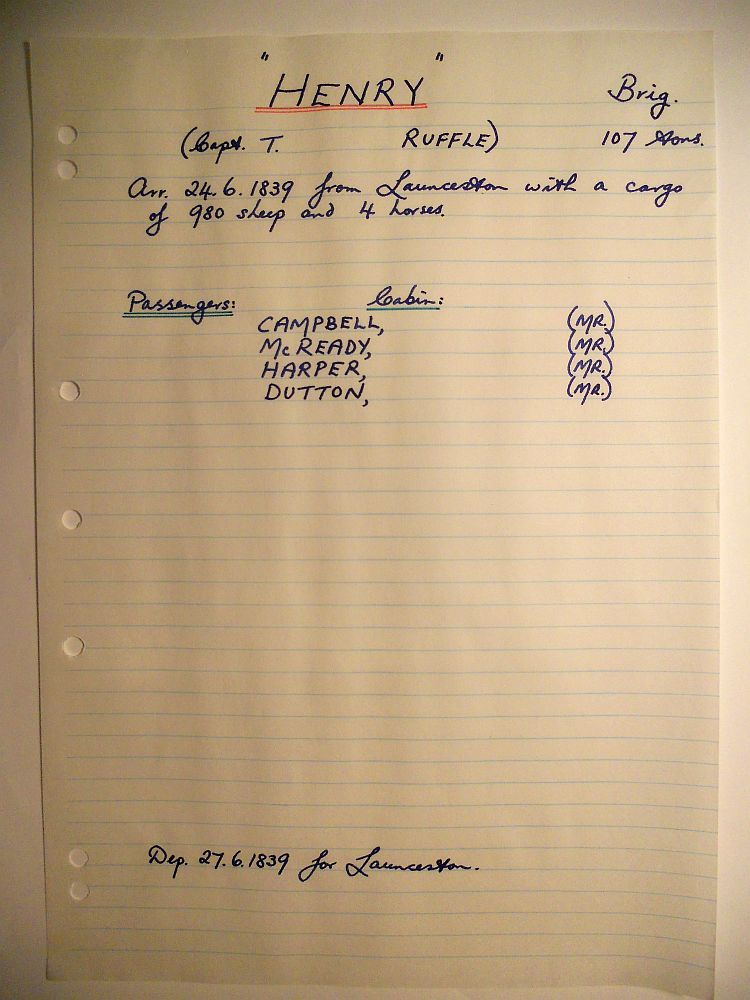 "HENRY" Brig.
(Capt. T. RUFFLE) 107 tons.
Arr. 24.6.1839 from Launceston with a cargo
of 980 sheep and 4 horses.
Passengers: Cabin:
CAMPBELL, (MR.)
McREADY, (MR.)
HARPER, (MR.)
DUTTON, (MR.)
Dep. 27.6.1839 for Launceston.